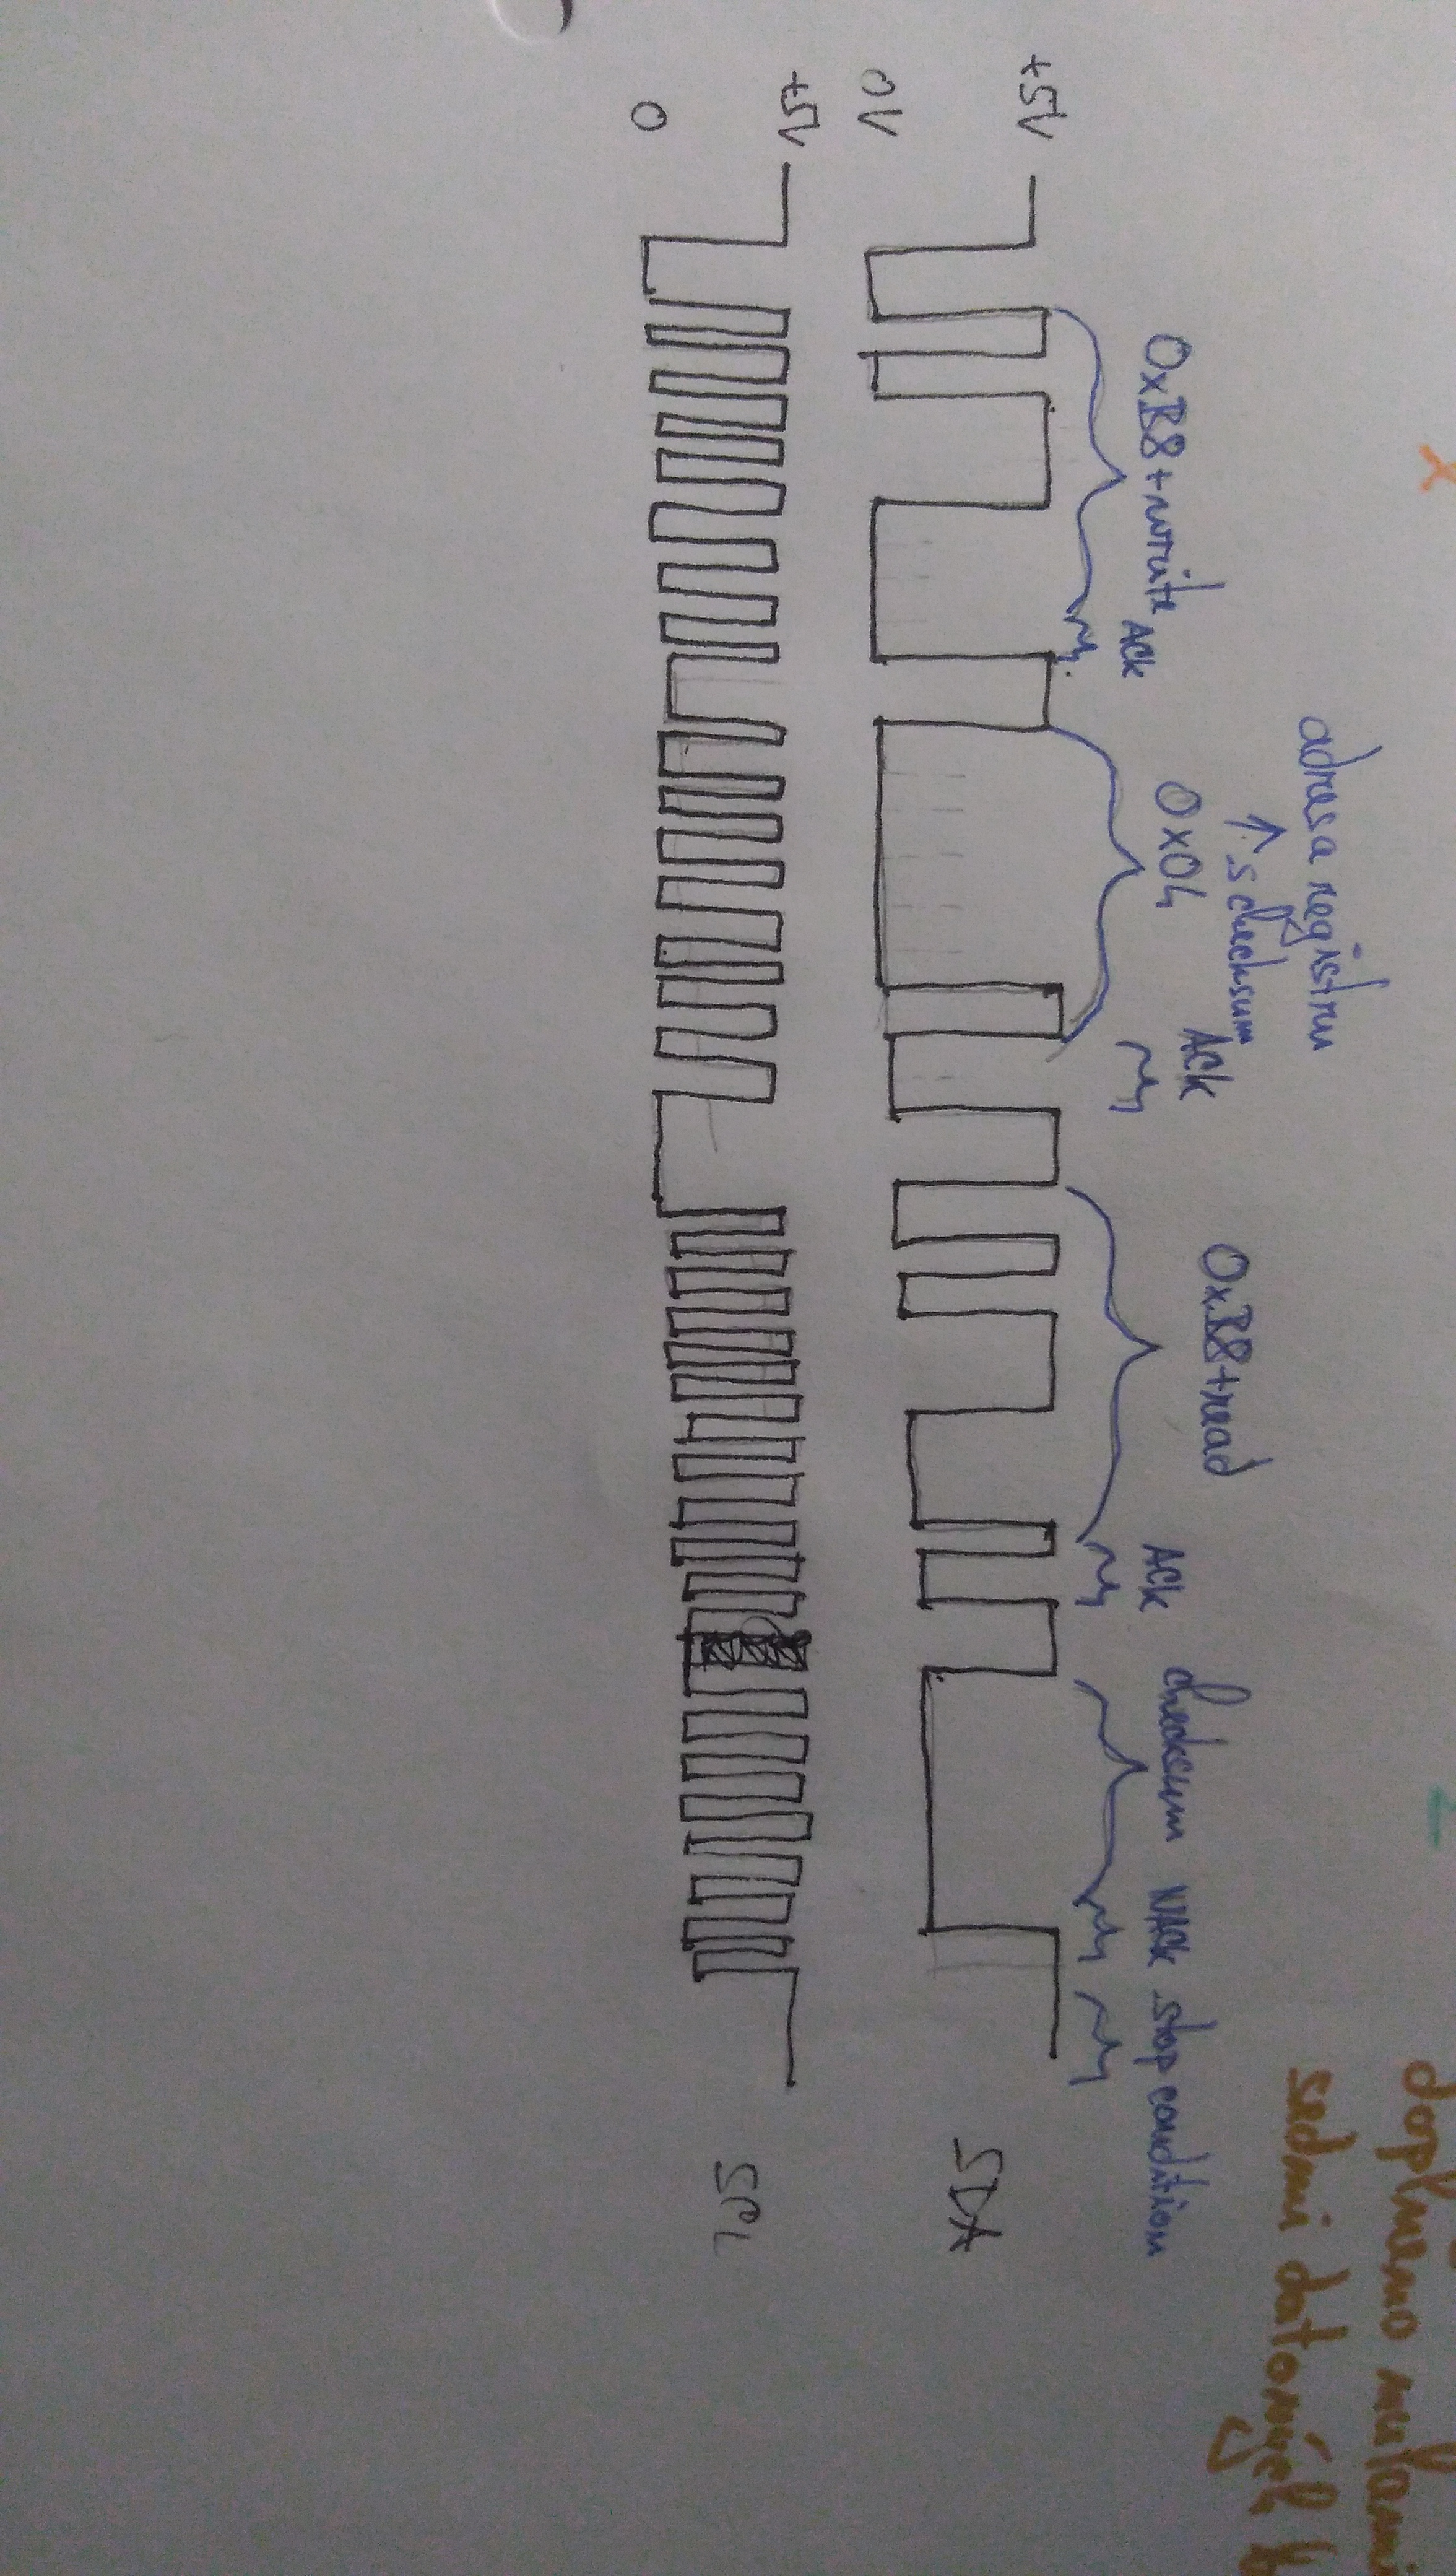 doplněno nulami
sedmi datových
adresa registru
↑ s checksum
0xB8+write
ACK
0x04
ACK
0xB8+read
ACK
checksum
NACK
stop condition
+5V
0V
SDA
+5V
0
SCL